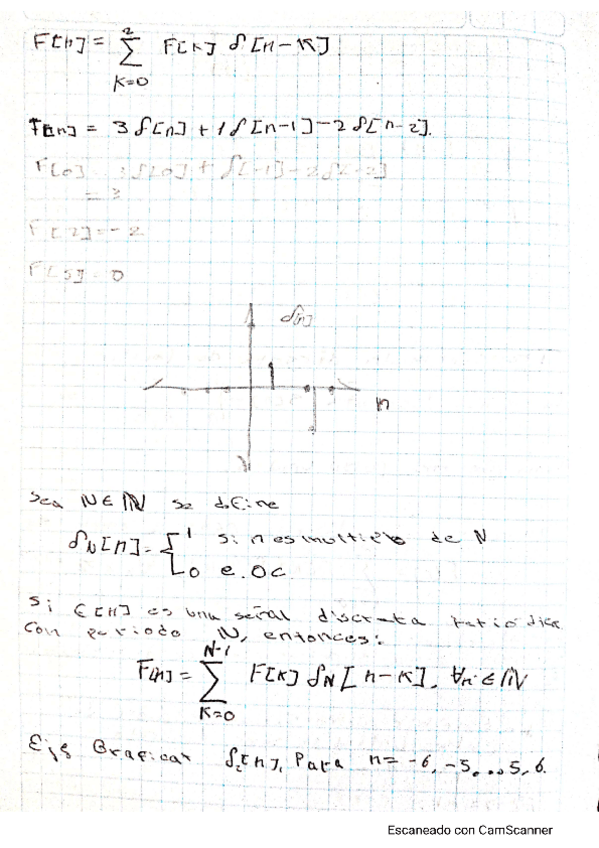 F[n] = 2 ∑ K=0 F[k] δ[n-K]
F[n] = 3 δ[n] + 1 δ[n-1] - 2 δ[n-2].
F[0] 3δ[0] + δ[-1] - 2δ[-2]
= 3
F[2] = -2
F[5] = 0
δ[n]
n
Sea N∈ℕ se define
δN[n] = { 1 si n es multiplo de N
0 e.oc
Si F[n] es una señal discreta periodica
con periodo N, entonces:
F[n] = N-1 ∑ K=0 F[K] δN[n-K], ∀n∈ℕ
Ejs Graficar δ2[n], Para n= -6, -5, ..., 5, 6.
Escaneado con CamScanner